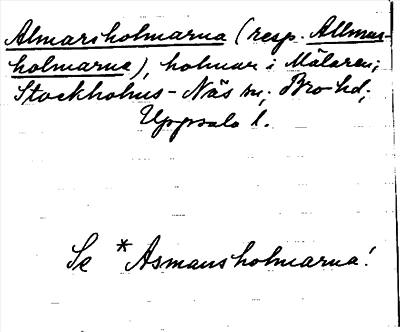 Almarsholmarna (resp. Allmar-
holmarna), holmar i Mälaren;
Stockholms-Näs sn; Bro hd;
Uppsala l.
Se *Asmansholmarna!